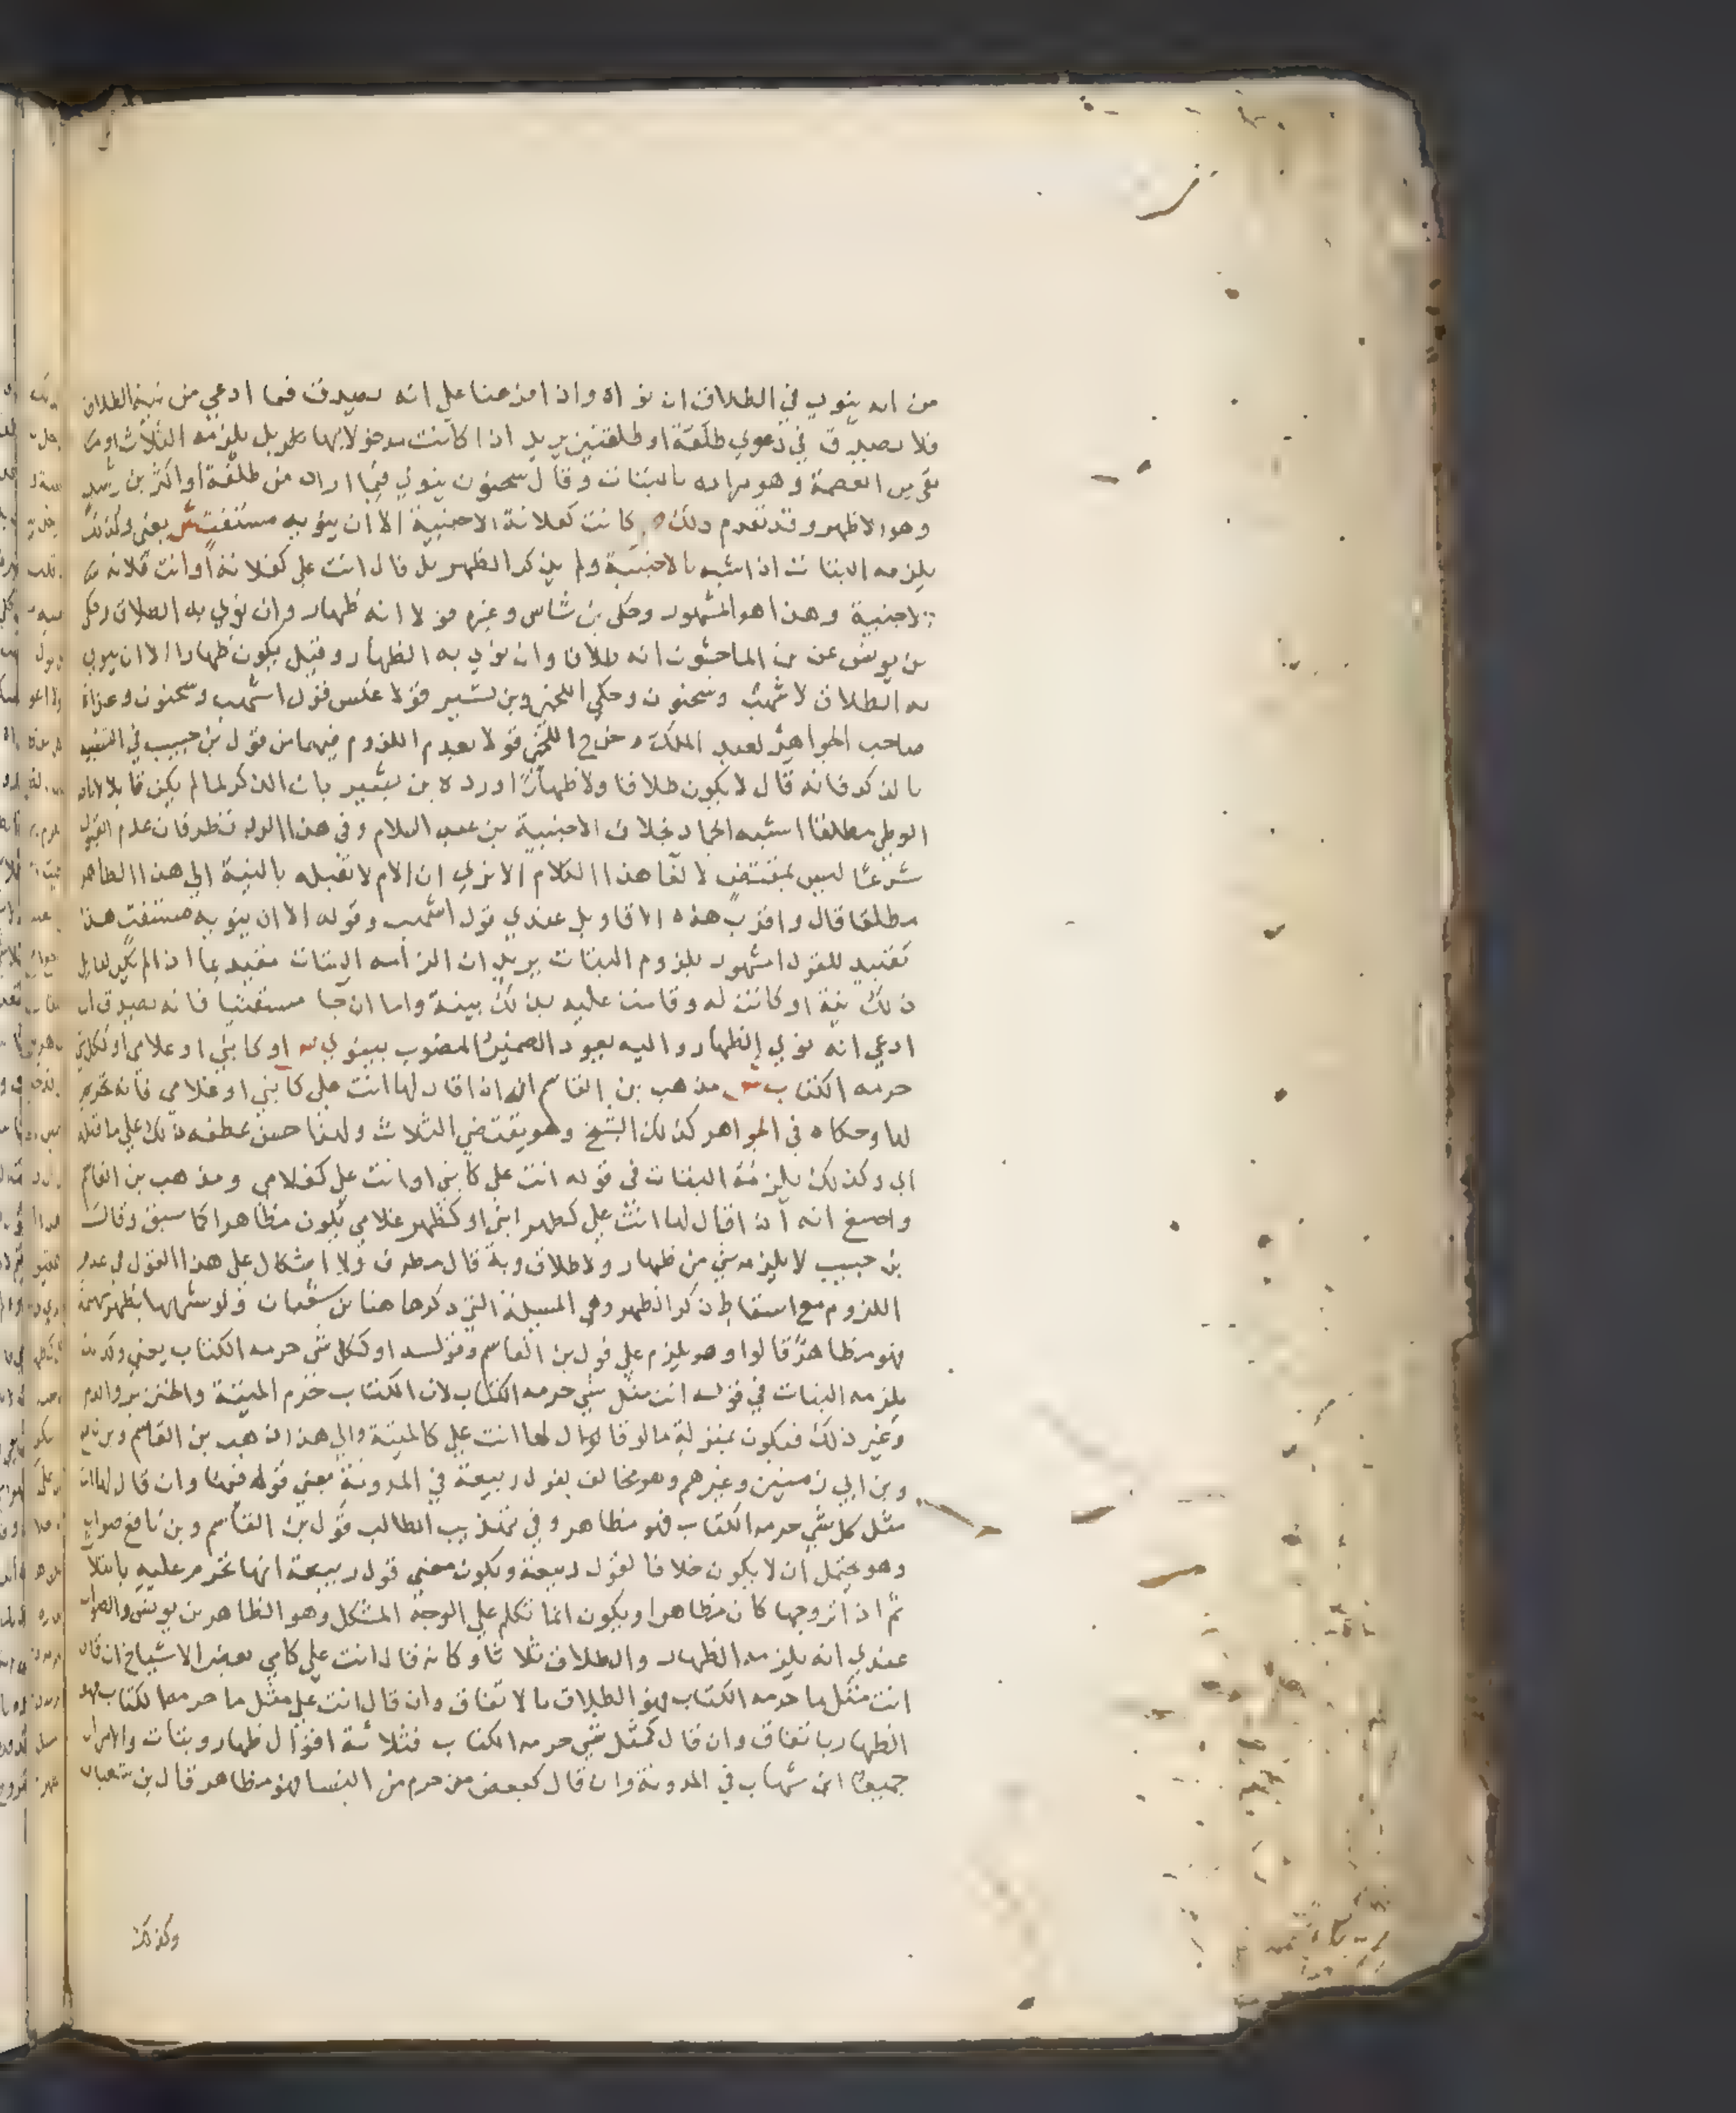 من انه ينوي في الطلاق ان نواه واذا فرعنا علي انه يصدق فيما ادعي من نية الطلاق
فلا يصدق في دعوي طلقة او طلقتين يريد اذا كانت مدخولا بها بل يلزمه الثلاث
العصمة وهو مراده بالبتات وقال سحنون ينوي فيما اراد من طلقة او اكثر بن رشد
وهو الاظهر وقد تقدم ذلك كانت كفلانة الاجنبية الا ان ينويه مستفت ش يعني وكذلك
يلزمه البتات اذا شبه بالاجنبية ولم يذكر الظهر بل قال انت علي كفلانة او انت فلانة
الاجنبية وهذا هو المشهور وحكي بن شاس وغيره قولا انه ظهار وان نوي به الطلاق وحكي
بن يونس عن بن الماجشون انه طلاق وان نوي به الظهار وقيل يكون ظهارا الا ان ينوي
به الطلاق لاشهب وسحنون وحكي اللخمي وبن بشير قولا عكس قول اشهب وسحنون وعزاه
صاحب الجواهر لعبد الملك وخرج اللخمي قولا بعدم اللزوم فيهما من قول بن حبيب في التشبيه
بالذكر فانه قال لا يكون طلاقا ولا ظهارا ورده بن بشير بان الذكر لما لم يكن قابلا
الوطي مطلقا اشبه الجماد بخلاف الاجنبية بن عبد السلام وفي هذا الرد نظر فان عدم القبول
شرعا ليس بمقتض لالغا هذا الكلام الا تري ان الام لا تقبله بالنسبة الي هذا الظاهر
مطلقا قال واقرب هذه الاقاويل عندي قول اشهب وقوله الا ان ينويه مستفت هذا
تقييد للقول المشهور بلزوم البتات يريد ان الزامه البتات مقيد بما اذا لم يكن
ذلك نية او كانت له وقامت عليه بذلك بينة واما ان جا مستفتيا فانه يصدق ان
ادعي انه نوي الظهار واليه يعود الضمير المنصوب بينوي او كابني او غلامي او ككل شي
حرمه الكتاب ش مذهب بن القاسم انه اذا قال لها انت علي كابني او غلامي فانه تحريم
لها وحكاه في الجواهر كذلك الشيخ وهو يقتضي الثلاث ولهذا حسن عطفه ذلك علي ما قبله
اي وكذلك يلزمه البتات في قوله انت علي كابني او انت علي كغلامي ومذهب بن القاسم
واصبغ انه اذا قال لها انت علي كظهر ابني او كظهر غلامي يكون مظاهرا كما سبق وقال
بن حبيب لا يلزمه شي من ظهار ولا طلاق وبه قال مطرف ولا اشكال علي هذا القول في عدم
اللزوم مع اسقاط ذكر الظهر وهي المسيلة التي ذكرها هنا بن شعبان ولو شبهها بظهر بهيمة
فهو مظاهر قالوا وهو يلزم علي قول بن القاسم وقوله او ككل شي حرمه الكتاب يعني وكذلك
يلزمه البتات في قوله انت مثل شي حرمه الكتاب لان الكتاب حرم الميتة والخنزير والدم
وغير ذلك فيكون بمنزلة ما لو قال لها انت علي كالميتة والي هذا ذهب بن القاسم وبن نافع
وبن ابي زمنين وغيرهم وهو مخالف لقول ربيعة في المدونة يعني قوله فيها وان قال لها انت
مثل كل شي حرمه الكتاب فهو مظاهر وفي تهذيب الطالب قول بن القاسم وبن نافع صواب
وهو يحتمل ان لا يكون خلافا لقول ربيعة ويكون معني قول ربيعة انها تحرم عليه بالثلاث
ثم اذا تزوجها كان مظاهرا ويكون انما تكلم علي الوجه المشكل وهو الظاهر بن يونس والصواب
عندي انه يلزمه الظهار والطلاق ثلاثا وكانه قال انت علي كامي بعض الاشياخ ان قال
انت مثل ما حرمه الكتاب فهو الطلاق بالاتفاق وان قال انت علي مثل ما حرمه الكتاب فهو
الظهار باتفاق وان قال كمثل شي حرمه الكتاب فثلاثة اقوال ظهار وبتات والامران
جميعا ابن شهاب في المدونة وان قال كبعض من حرم من النسا فهو مظاهر قال بن شعبان
وكذلك